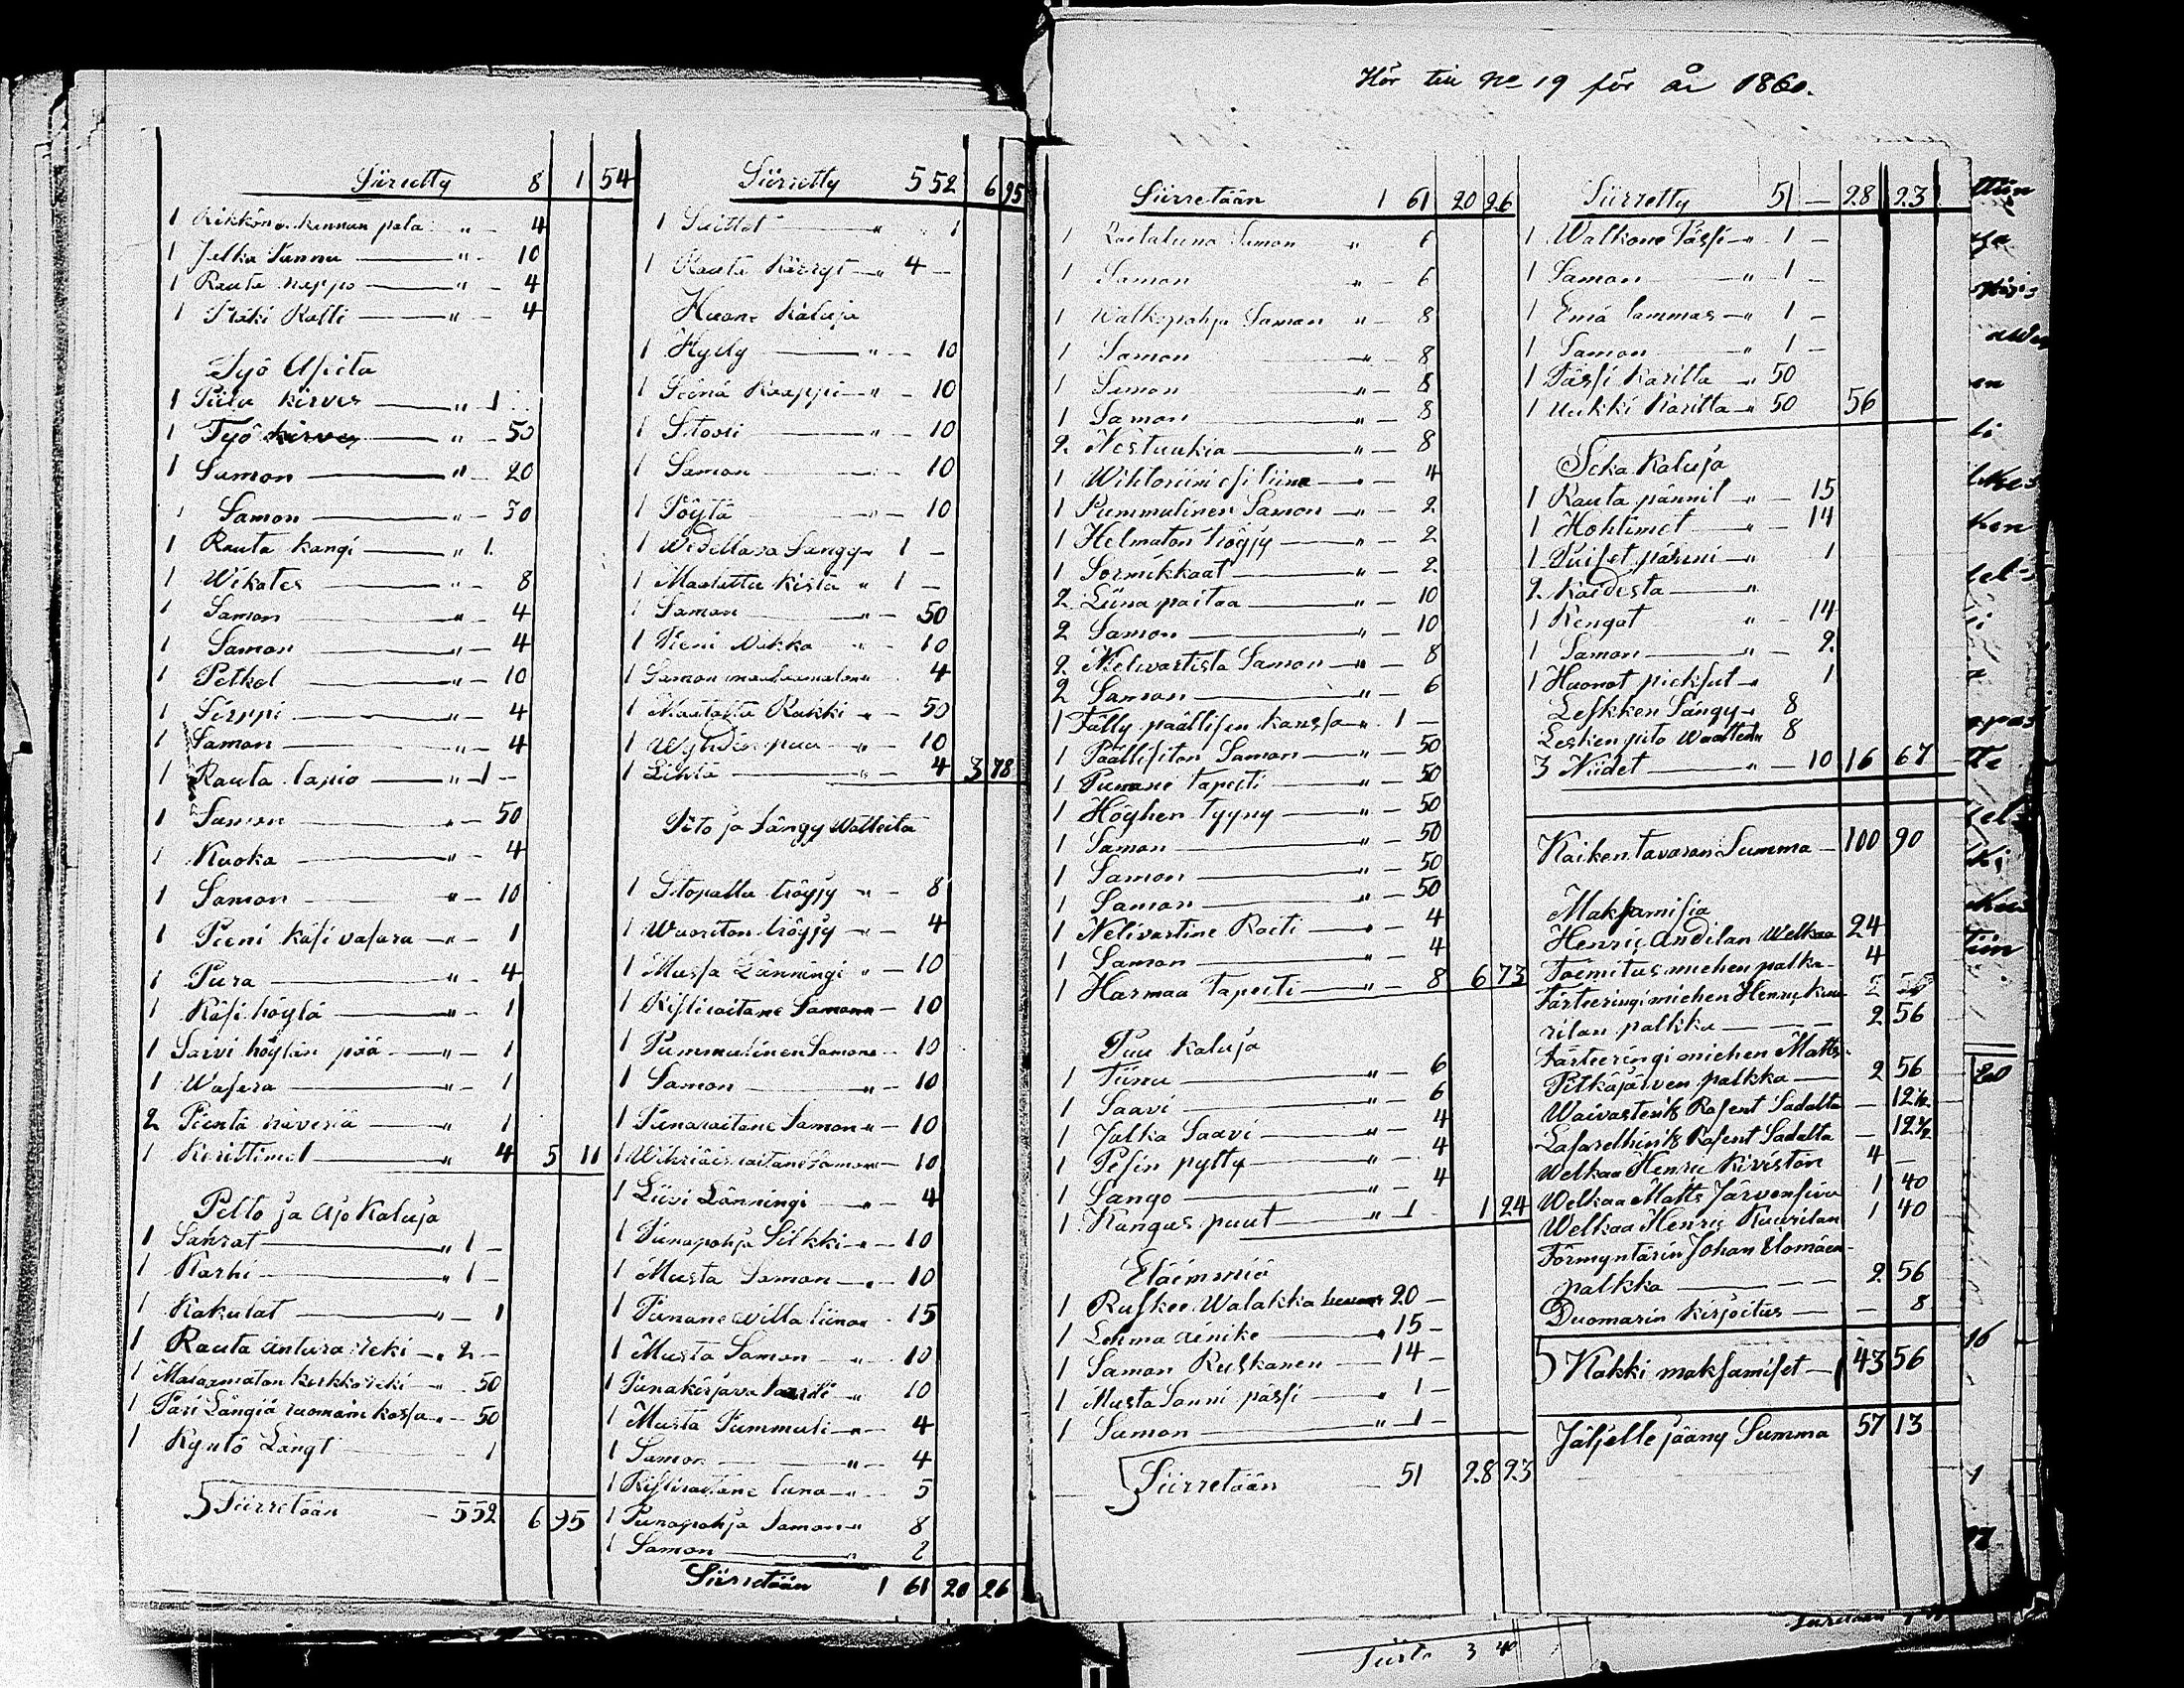 Hör till No 19 för år 1860.
Siirretty 8 1 54
1 Rikkönä. kannun pala " - 4
1 Jalka Kannu " - 10
1 Rauta nappo " - 4
1 Wäki Ratti " - 4
Työ Aseita
1 Piilu kirves " 1
1 Työ kirves " - 50
1 Samon " - 20
1 Samon " - 30
1 Rauta kangi " 1.
1 Wikates " - 8
1 Samon " - 4
1 Samon " - 4
1 Petkel " - 10
1 Sirppi " - 4
1 Samon " - 4
1 Rauta lapio " 1 -
1 Samon " - 50
1 Kuoka " - 4
1 Samon " - 10
1 Pieni käsi vasara " - 1
1 Pura " - 4
1 Käsi höylä " - 1
1 Saivi höylän pää " - 1
1 Wasara " - 1
2 Pientä naveria " 1
1 Kerittimet " 4 5 11
Pelto ja Ajo Kaluja
1 Sahrat " 1 -
1 Karhi " 1 -
1 Kakulat " - 1
1 Rauta antura reki - " 2 -
1 Maalamaton kirkko reki " 50
1 Pari Längiä ruomain kassa " - 50
1 Kyntö Längt 1
Siirretään - 5 52 6 95
Siirretty 5 52 6 95
1 Suittet " 1
1 Rauta Kärryt " 4 -
Huone Kaluja
1 Hyily " - 10
1 Seinä Kaappi " - 10
1 Stooli " - 10
1 Samon 10
1 Pöytä " - 10
1 Wedettävä Sängy " 1 -
1 Maalattu Kistu " 1 -
1 Samon " - 50
1 Pieni Wakka " - 10
1 Samon maalaamaton " 4
1 Maalattu Rukki " - 50
1 " - 10
1 Lihta " - 4 3 78
Pito ja Sängy Watteita
1 Stopattu tröyjy " - 8
1 Wuoriton tröyjy " - 4
1 Mussa Länningi " - 10
1 Ristiraitane Samon - 10
1 Pummulinen Samon - 10
1 Samon " - 10
1 Punaraitane Samon " - 10
1 Wihriäis raitane Samon - 10
1 Liivi Länningi " - 4
1 Punapohja Silkki " - 10
1 Musta Samon " - 10
1 Punane villa liina - 15
1 Musta Samon " - 10
1 Punakirjava " 10
1 Musta Pummuli " - 4
1 Samon " - 4
1 Ristiraitane luna " - 5
1 Punapohja Samon " 8
1 Samon " 2
Siirretään 1 61 20 26
Siirretään 1 61 20 26
1 Raetaluna Samon " 6
1 Samon " - 6
1 Walkopohja Samon " - 8
1 Samon " - 8
1 Samon " - 8
1 Samon " 8
2 Nestuukia " - 8
1 Wiktoriini esiliina - 4
1 Pummulinen Samon - 2
1 Helmaton tröyjy " - 2
1 Sormikkaat " - 2
2 Liina paitaa " - 10
2 Samon " - 10
2 Nelivartista Samon " - 8
2 Samon " - 6
1 Fälly päällisen kanssa " 1 -
1 Päällisiton Samon " - 50
1 Punane tapeeti " - 50
1 Höyhen tyyny " - 50
1 Samon " - 50
1 Samon " - 50
1 Samon " - 50
1 Nelivartine Raiti - 4
1 Samon " - 4
1 Harmaa Tapeeti " - 8 6 73
Puu Kaluja
1 Tiinu " - 6
1 Saavi " - 6
1 Jalka Saavi " - 4
1 Pesin pytty " - 4
1 Sango " - 4
1 Kangas puut " 1 1 24
Eläimmiä
1 Ruskee Walakka 20 -
1 Lehma Ainike 15 -
1 Saman Ruskanen 14 -
1 Musta Sonni pässi 1 -
1 Samon " 1 -
Siirretään - 51 28 23
Siirretty 51 - 28 23
1 Walkone Pässi " 1 -
1 Samon " 1 -
1 Emä lammas " 1 -
1 Samon " 1 -
1 Pässi Karitta " 50
1 Uukki Karitta " 50 56
Seka Kaluja
1 Rauta pännit " - 15
1 Hohtimet " - 14
1 " 1
2 Kaidesta "
1 Kengat " - 14
1 Samon " - 2
1 Huonot pieksut " 1
Lesken Sängy " 8
Lesken pito Waatteita 8
3 Niidet " - 10 16 67
Kaiken tavaran Summa - 100 90
Maksamisia
Henric Andilan Welkaa 24
Toimitus miehen palka - 4
Färteeringi miehen Henric Kuu 2
rilan palkka - - - 2 56
Färteeringi miehen Matts
Pitkäjärven palkka 2 56
Waivasten 1/8 Rosent Sadalta - 12 1/2
Lasarethin 1/8 Rosent Sadalta - 12 1/2
Welkaa Henric Kiviston 4 -
Welkaa Matts Järvensivu 1 40
Welkaa Henric Kuurilan 1 40
Förmyntärin Johan Uomäen
palkka - - - 2 56
Duomarin kirjoitus - - 8
Kakki maksamiset - 43 56
Jäljelle jääny Summa 57 13
Siirto 3 40
Siirretään